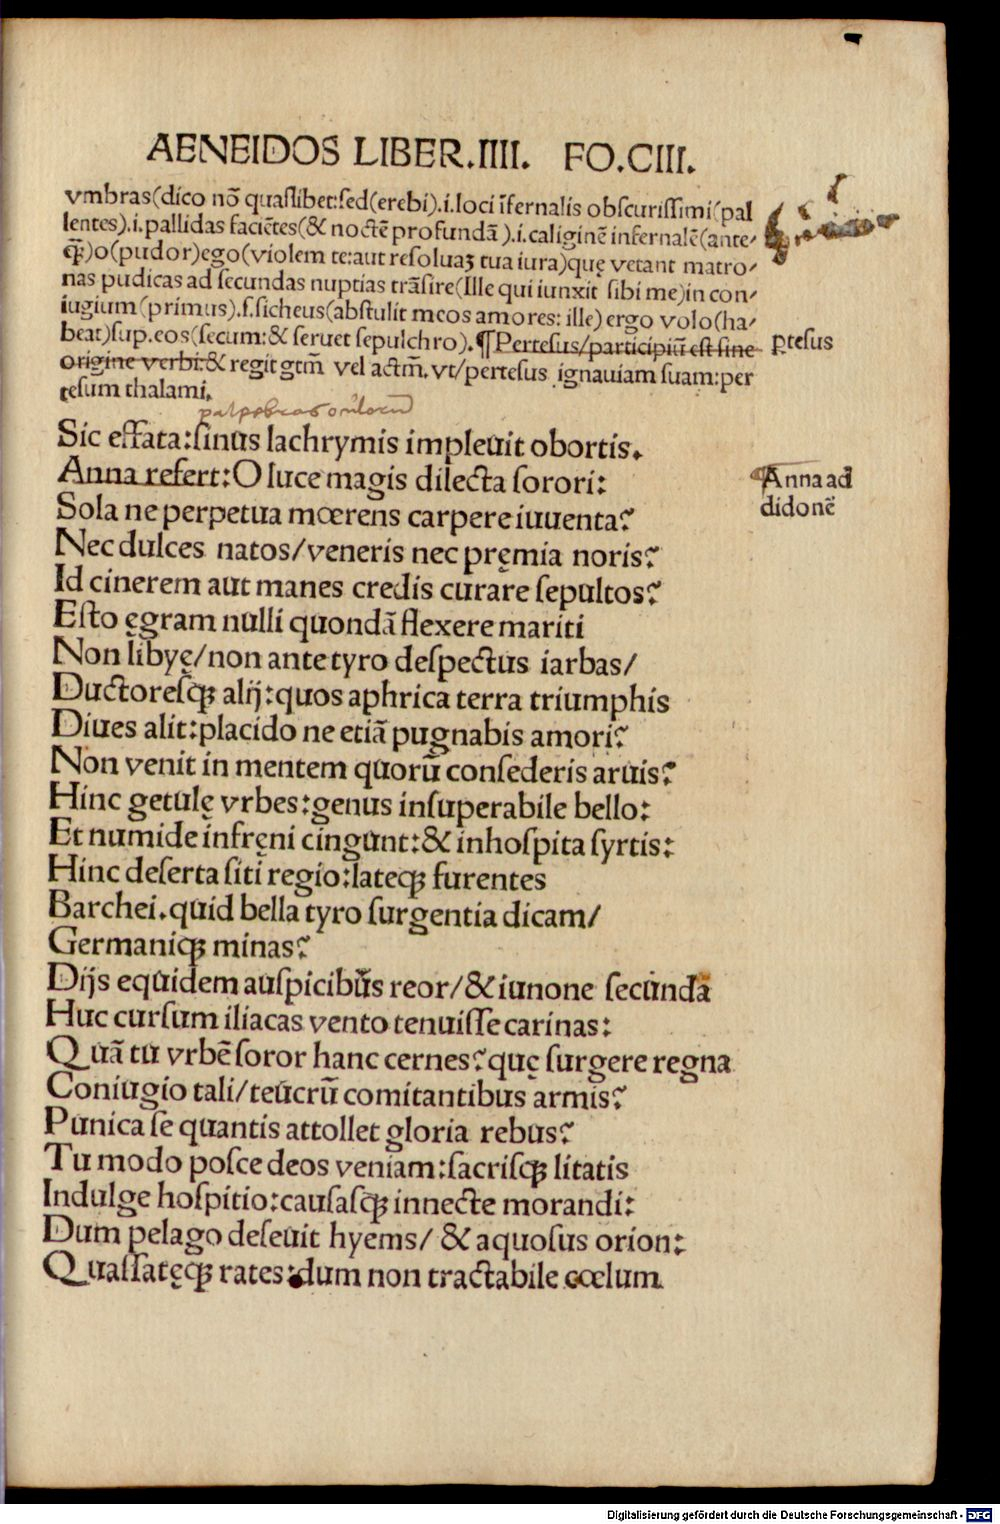 AENEIDOS LIBER.IIII. FO.CIII.
vmbras(dico nō quaſlibet:ſed(erebi).i.loci īfernalis obſcuriſſimi(pal
lentes).i.pallidas faciētes(& noctē profundā).i.caliginē infernalē(ante-
ꝙ̄)o(pudor)ego(violem te:aut reſoluaꝫ tua iura)quę vetant matro-
nas pudicas ad ſecundas nuptias trāſire(Ille qui iunxit ſibi me)in con-
iugium(primus).ſ.ſicheus(abſtulit meos amores: ille) ergo volo(ha-
beat)ſup.eos(ſecum:& ſeruet ſepulchro).¶Perteſus/participiū eſt ſine
origine verbi:& regit gtm̄ vel actm̄.vt/perteſus ignauiam ſuam:per
teſum thalami.
ꝑteſus
palpebras oculorū
Sic effata:ſinus lachrymis impleuit obortis.
Anna refert:O luce magis dilecta ſorori:
¶Anna ad
didonē
Sola ne perpetua mœrens carpere iuuenta?
Nec dulces natos/veneris nec pręmia noris?
Id cinerem aut manes credis curare ſepultos?
Eſto ęgram nulli quondā flexere mariti
Non libyę/non ante tyro deſpectus iarbas/
Ductoreſqꝫ alij:quos aphrica terra triumphis
Diues alit:placido ne etiā pugnabis amori?
Non venit in mentem quorū conſederis aruis?
Hinc getulę vrbes:genus inſuperabile bello:
Et numide infręni cingunt:& inhoſpita ſyrtis:
Hinc deſerta ſiti regio:lateqꝫ furentes
Barchei.quid bella tyro ſurgentia dicam/
Germaniqꝫ minas?
Dijs equidem auſpicibus reor/& iunone ſecundā
Huc curſum iliacas vento tenuiſſe carinas:
Quā tu vrbē ſoror hanc cernes?quę ſurgere regna
Coniugio tali/teucrū comitantibus armis?
Punica ſe quantis attollet gloria rebus?
Tu modo poſce deos veniam:ſacriſqꝫ litatis
Indulge hoſpitio:cauſaſqꝫ innecte morandi:
Dum pelago deſeuit hyems/ & aquoſus orion:
Quaſſatęqꝫ rates:dum non tractabile cœlum.
Digitalisierung gefördert durch die Deutsche Forschungsgemeinschaft - DFG